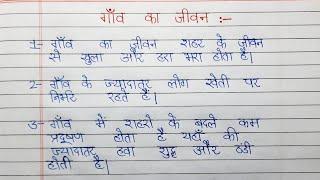 गाँव का जीवन :-
1- गाँव का जीवन शहर के जीवन
से खुला और हरा भरा होता है।
2- गाँव के ज्यादातर लोग खेती पर
निर्भर रहते है।
3- गाँव में शहरो के बदले कम
प्रदूषण होता है यहाँ की
ज्यादातर हवा शुद्ध और ठंडी
होती है।